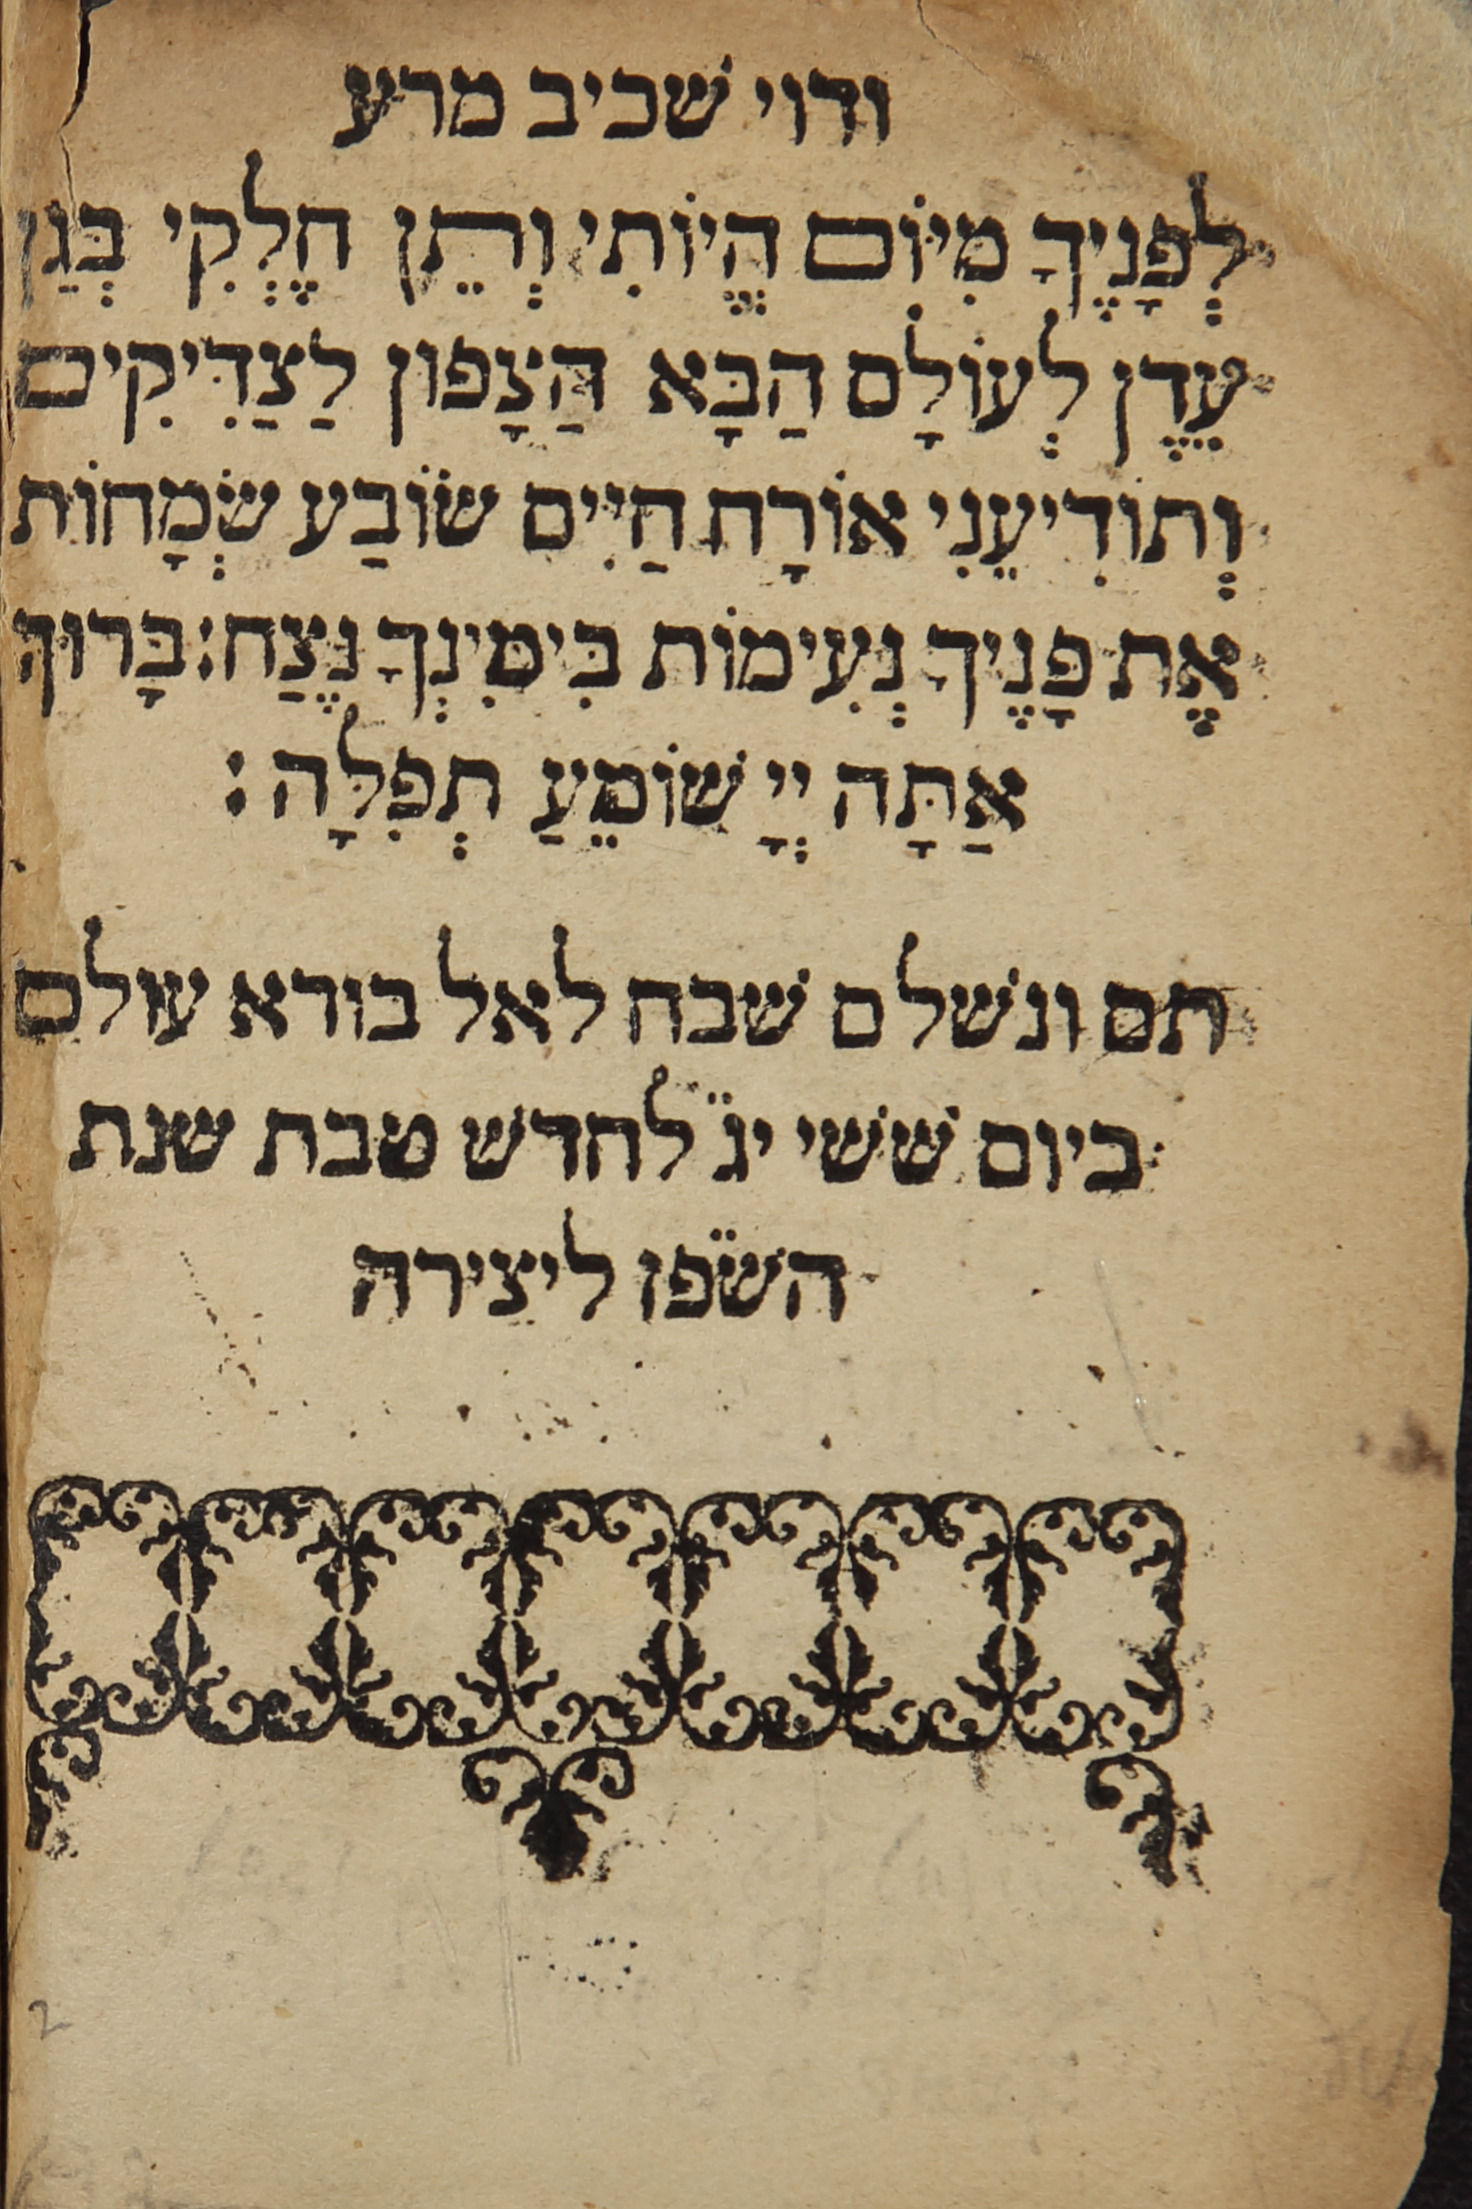 ודוי שכיב מרע
לְפָנֶיךָ מִיּוֹם הֱיוֹתִי וְתֵן חֶלְקִי בְּגַן
עֵדֶן לְעוֹלָם הַבָּא הַצָּפוּן לַצַדִּיקִים
וְתוֹדִיעֵנִי אוֹרָח חַיִּים שׂוֹבַע שְׂמָחוֹת
אֶת פָּנֶיךָ נְעִימוֹת בִּימִינְךָ נֶצַח: בָּרוּךְ
אַתָּה יְיָ שׁוֹמֵעַ תְּפִלָּה:
תם ונשלם שבח לאל בורא עולם
ביום ששי יג̈ לחדש טבת שנת
הש̈פו ליצירה
2